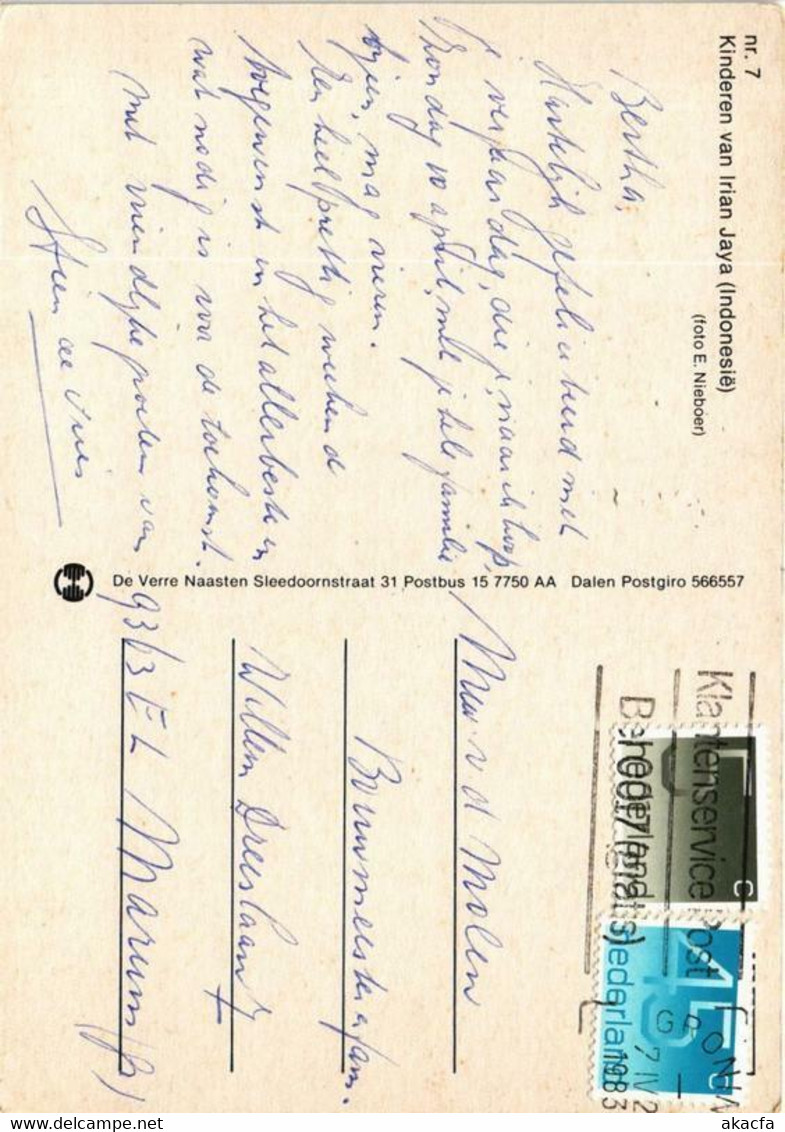 nr. 7
Kinderen van Irian Jaya (Indonesië)
(foto E. Nieboer)
Bertha,
Hartelijk gefeliciteerd met
je verjaardag, die je, naar ik hoop,
Zondag 10 april, met je hele familie
bijeen, mag vieren.
Een heel prettig weekend
toegewenst en het allerbeste en
wat nodig is voor de toekomst.
met vriendelijke groeten van
Stien de Vries
De Verre Naasten Sleedoornstraat 31 Postbus 15 7750 AA Dalen Postgiro 566557
Mevr. v d Molen
Bouwmeester a fam.
Willem Dreeslaan
9363 EL Marum (Gr)
Klantenservice Post
Bel 0017 (gratis)
nederland
5 c
nederland
45 c
GRONIN
7 IV
1983
akacfa